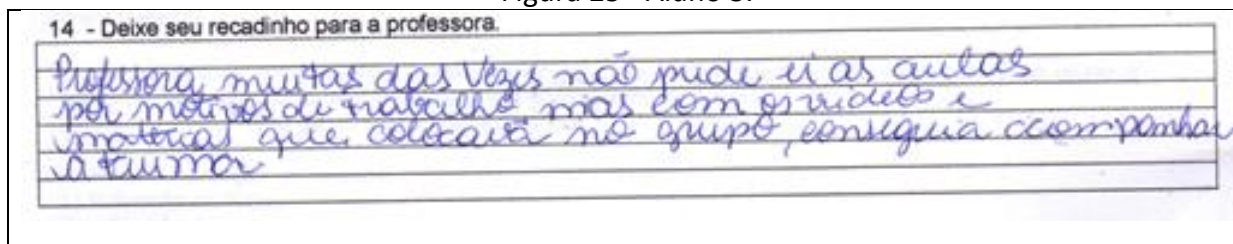 14 - Deixe seu recadinho para a professora.
Professora, muitas das vezes não pude ir as aulas
por motivos de trabalho mas com os videos e
materias que colocava no grupo, conseguia acompanhar
a turma